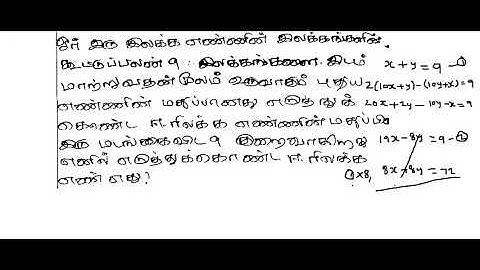 ஓர் இரு இலக்க எண்ணின் இலக்கங்களின்
கூட்டுப்பலன் 9. இலக்கங்களை இடம் x+y=9 -①
மாற்றுவதன் மூலம் உருவாகும் புதிய 2(10x+y)-(10y+x)=9
எண்ணின் மதிப்பானது எடுத்துக் 20x+2y-10y-x=9
கொண்ட ஈரிலக்க எண்ணின் மதிப்பின்
இரு மடங்கைவிட 9 குறைவாகிறது 19x-8y=9-②
எனில் எடுத்துக்கொண்ட ஈரிலக்க
எண் எது? ①x8, 8x+8y=72